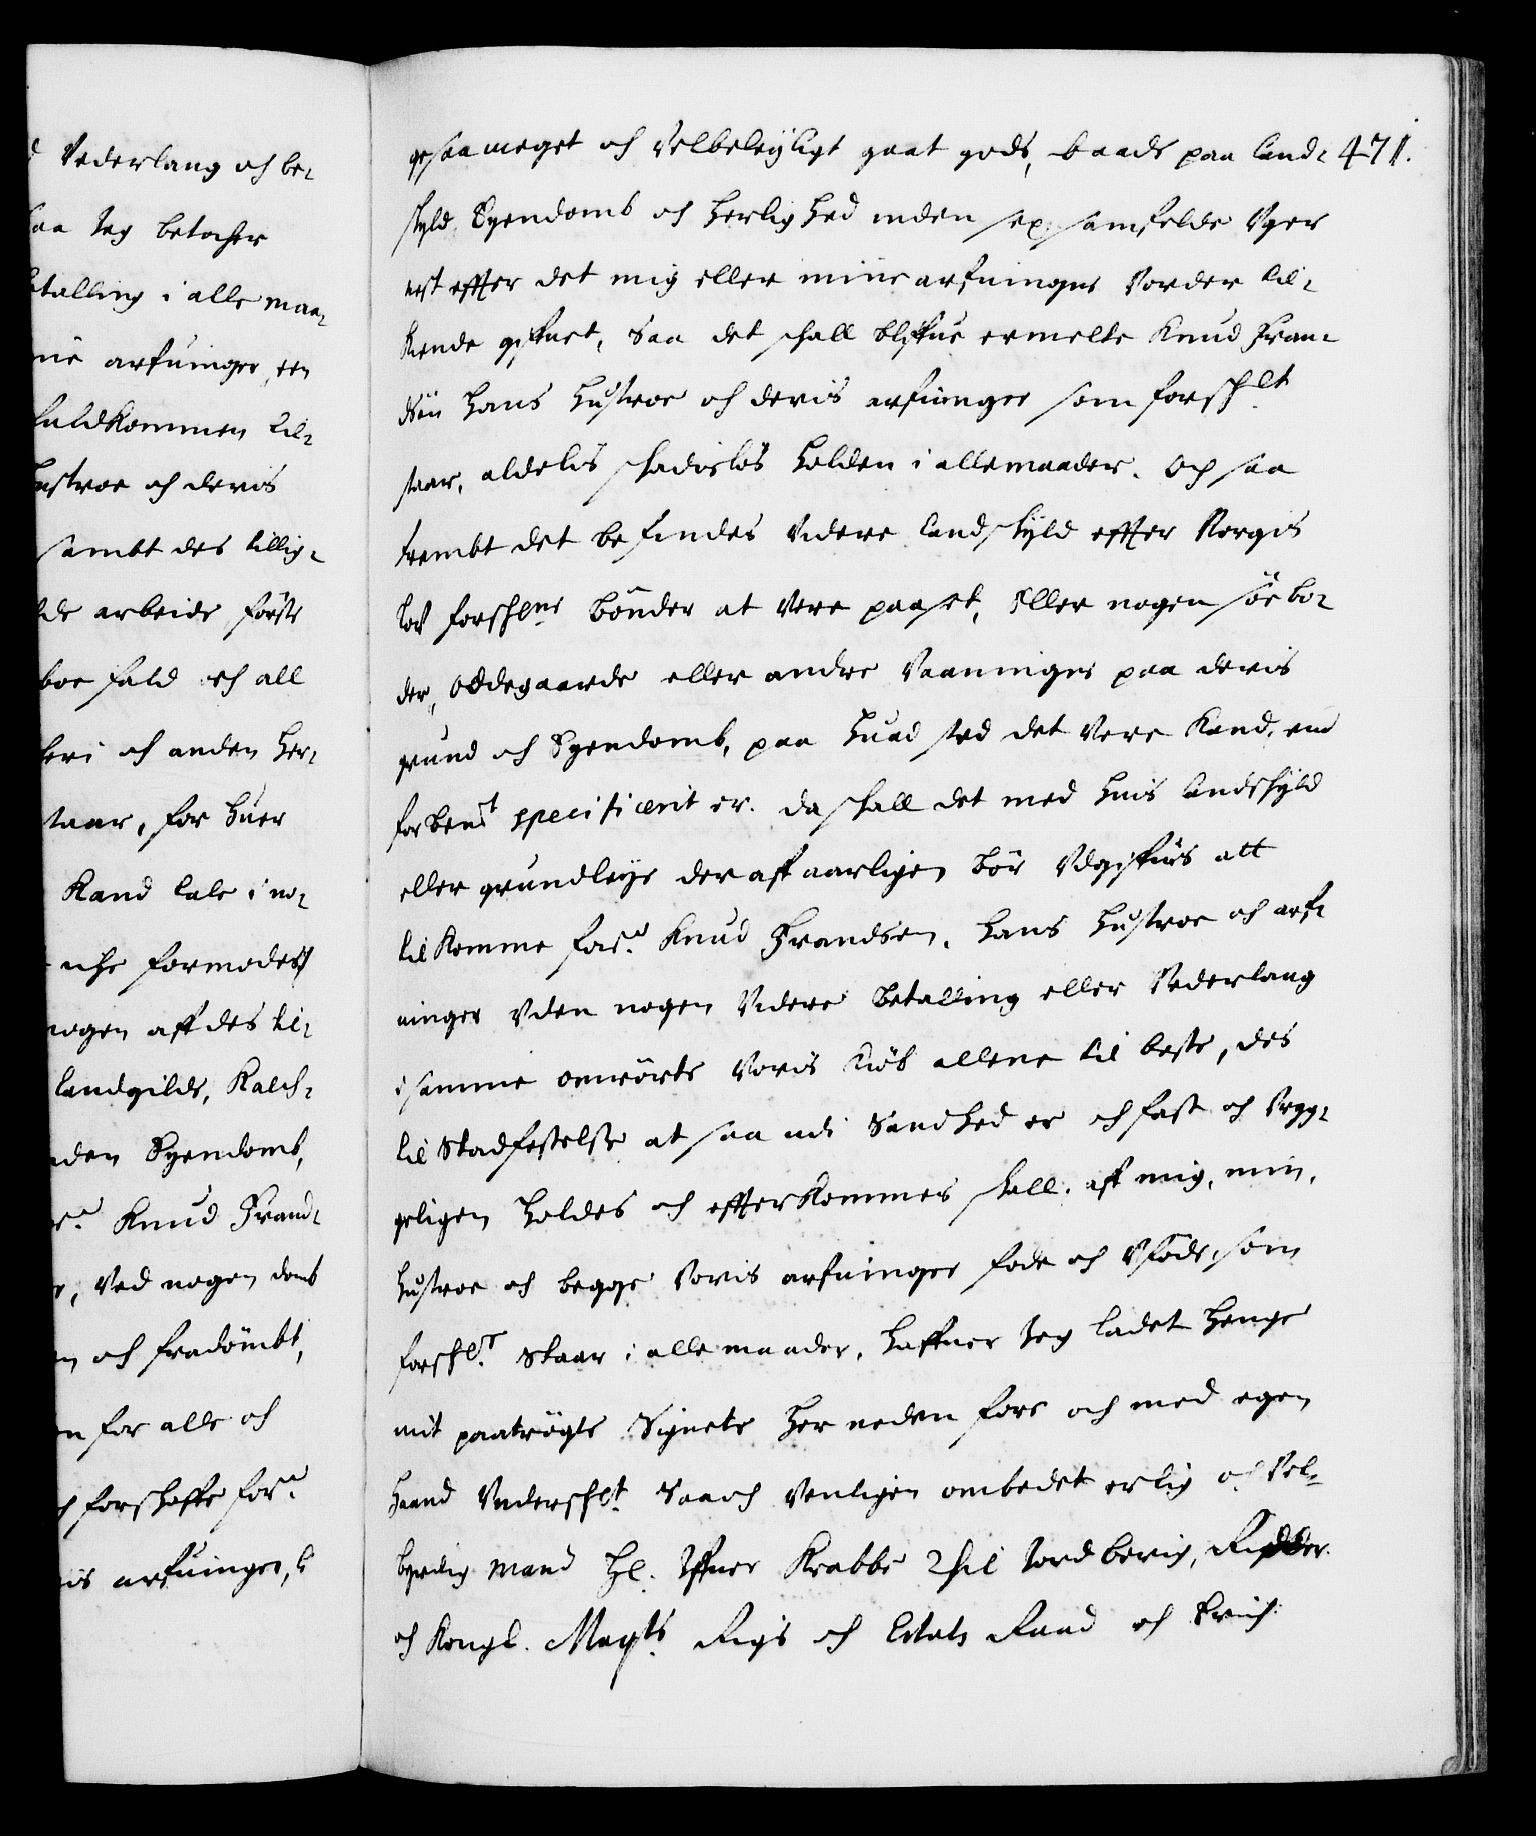 Vederlang och be-
saa Jeg betacher
etalling i alle maa-
ne arfuinger, en
fuldkommen til-
Hustroe och deris
sambt des tillig-
lde arbeide første
boe fald och all
och anden Her-
staar, for huer
Kand tale i no-
formodes
nogen aff des til-
landgilde, Kald-
den Eyendomb,
Knud Frand-
Ved nogen domb
och fradømbt,
n for alle och
forskaffe for:ne
is arfuinger,
471.
gesaa meget och Velbeleyligt gaat gods, baade paa land-
skyld Eyendomb och Herlighed inden sex samfelde Vger
nest effter det mig eller miine arfuinger Vorder til-
kiende giffuet, Saa det schall bliffue ermelte Knud Fran-
dsøn Hans Hustroe och deris arfuinger som forschlt
staar, aldelis schadisløs holden i alle maader. Och saa
frembt det befindes Videre landschyld effter Norgis
lov forschne bønder at Vere paaset, Eller nogen søebo-
der, Ødegaarde eller andre Vaaninger paa deris
grund och Eyendomb, paa huad sted det Vere Kand, end
forbent specificerit er. da schall det med huis landschyld
eller grundleye der aff aarligen bør Vdgiffuis att
tilkomme for:ne Knud Frandsen, Hans Hustroe och arf-
uinger Vden nogen Videre betalling eller Vederlang
i samme omrørte Voris Kiøb allene til beste, des
til Stadfestelse at saa udi Sandhed er och fast och Vryg-
geligen holdes och effterkommes schall. aff mig, min,
Hustroe och begge Voris arfuinger føde och Vføde, som
forschlt Staar i alle maader, haffuer Jeg ladet henge
mit paatrøgte Signete her neden fore och med egen
Haand Vnderschlt Saa och Venligen ombedet erlig och Vel-
byrdig Mand Hl. Iffuer Krabbe Thil Jordberig, Ridder
och Kongl. Mayts Rigs och Estats Raad och